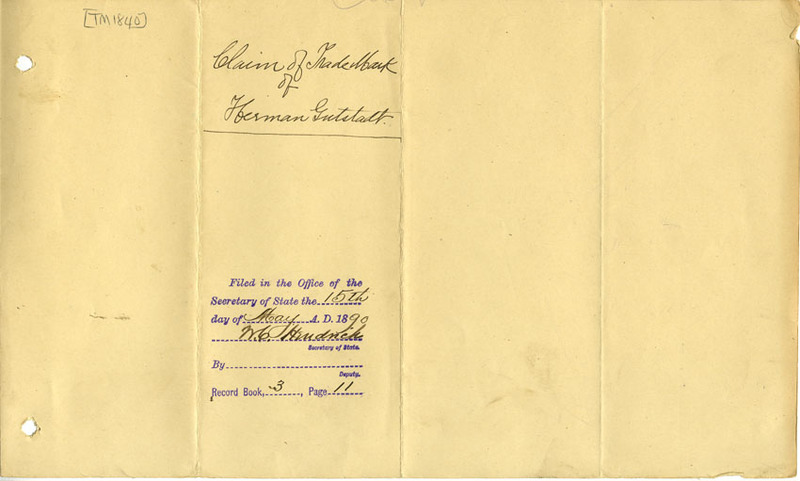 [TM1840]
Claim of Trade Mark
of
Herman Gutstadt.
Filed in the Office of the
Secretary of State the 15th
day of May A. D. 1890
W. C. Hendricks
Secretary of State.
By
Deputy.
Record Book, 3, Page 11